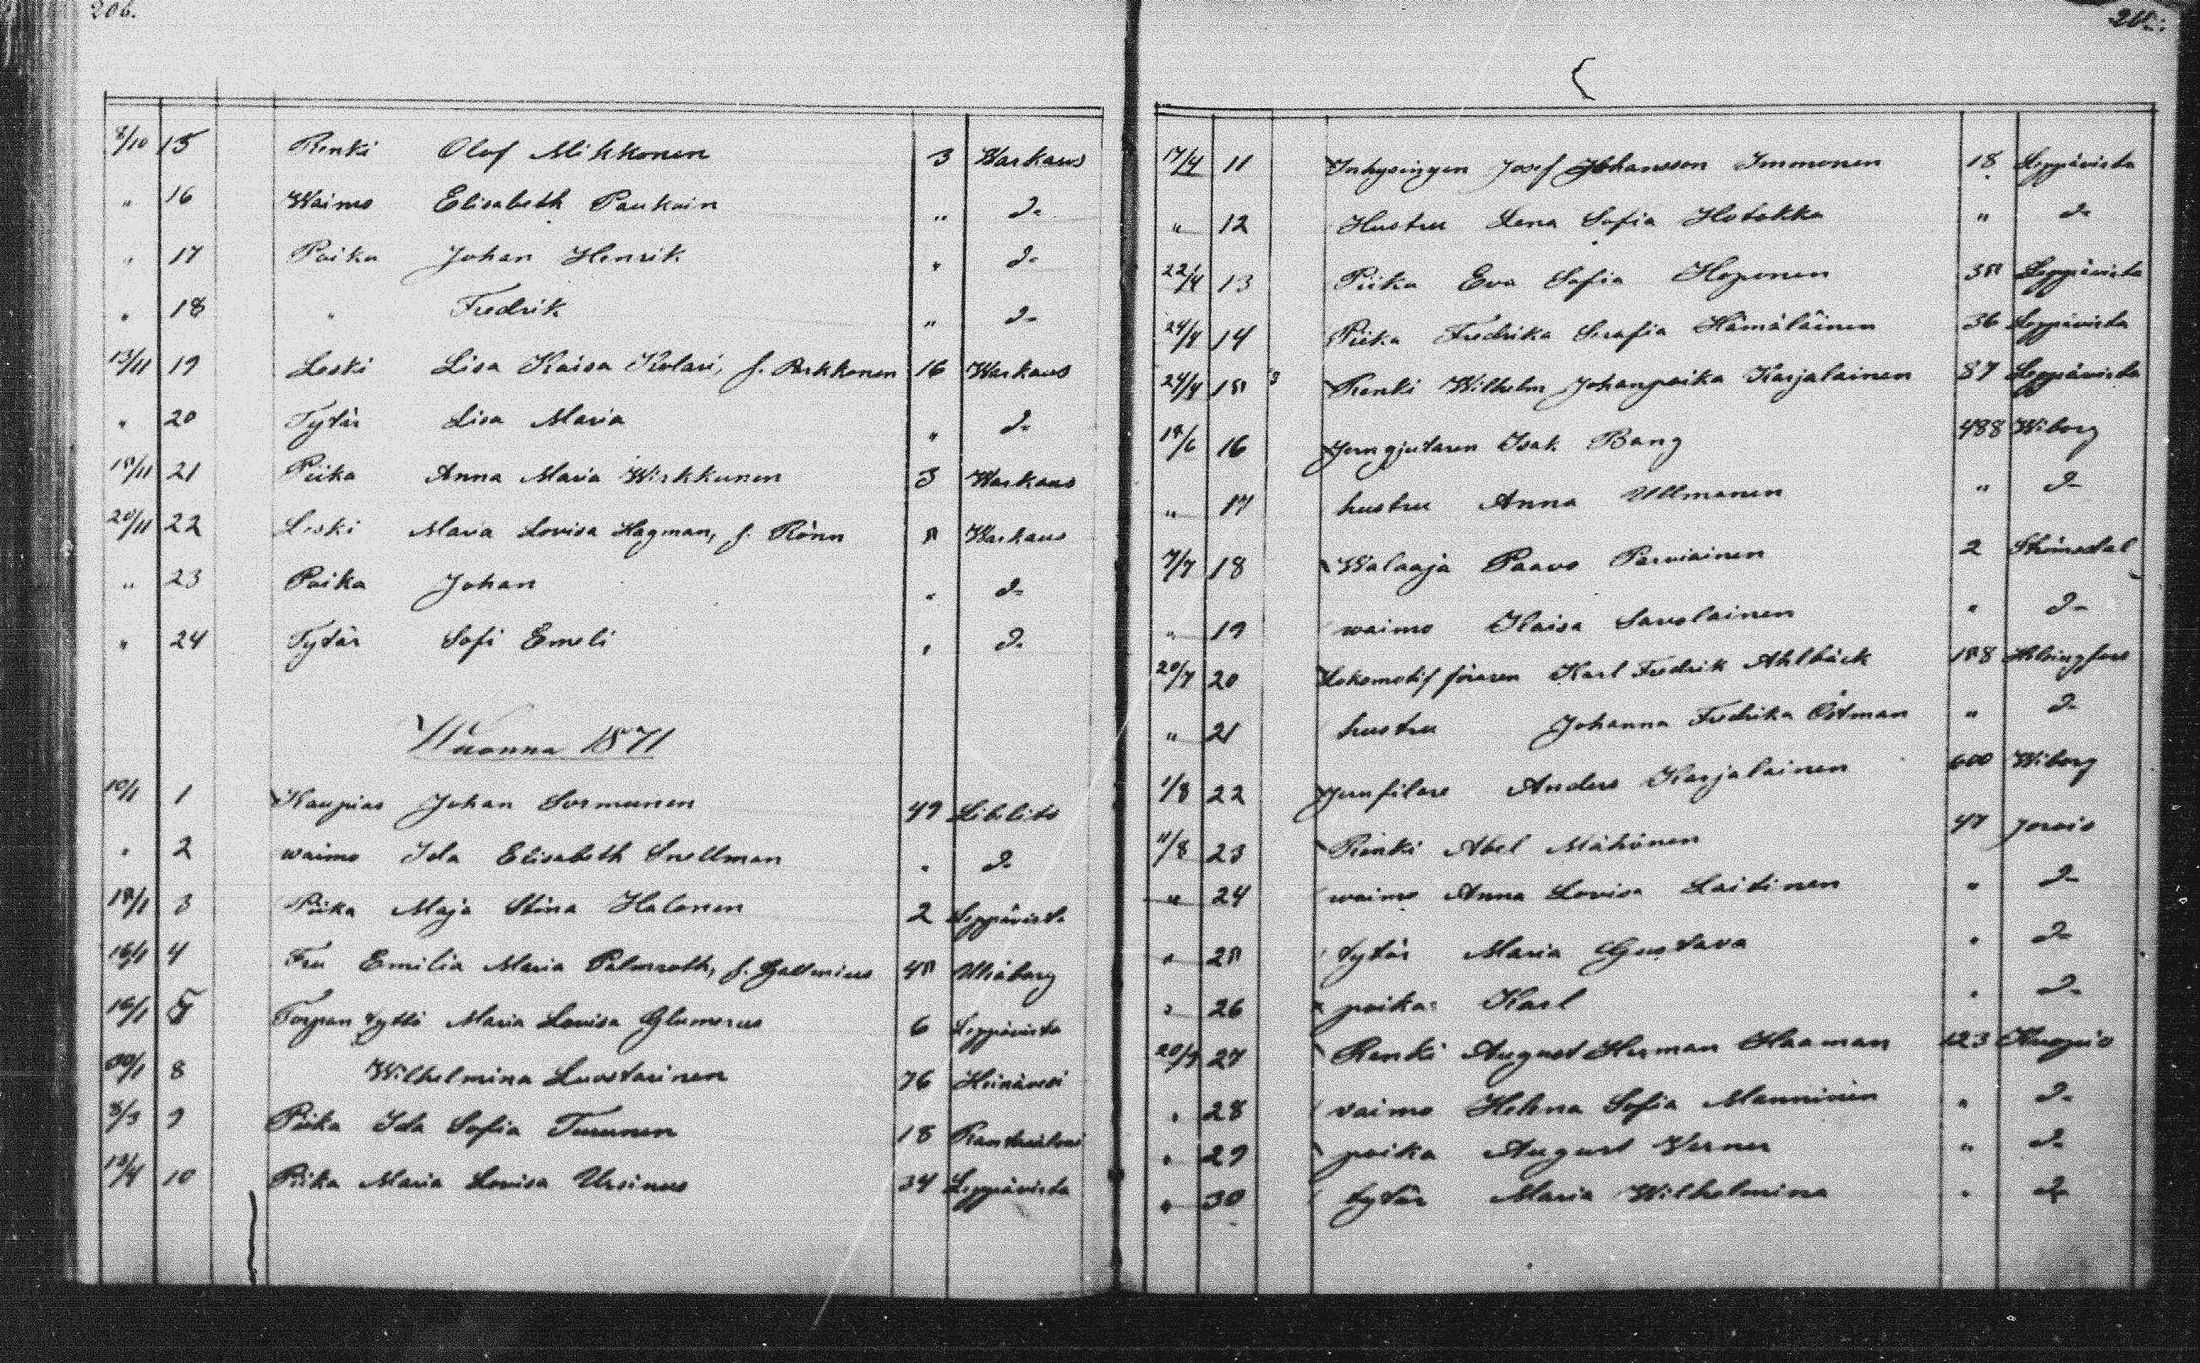 206.
8/10 15 Renki Olof Mikkonen 3 Warkaus
" 16 Waimo Elisabeth Paukoin " d:o
" 17 Poika Johan Henrik " d:o
" 18 " Fredrik " d:o
13/11 19 Leski Lisa Kaisa Kolari, f. Parkkonen 16 Warkaus
" 20 Tytär Lisa Maria " d:o
15/11 21 Piika Anna Maria Wirkkunen 3 Warkaus
20/11 22 Leski Maria Lovisa Hagman, f. Rönn 5 Warkaus
" 23 Poika Johan " d:o
" 24 Tytär Sofi Emeli " d:o
Wuonna 1871
10/1 1 Kaupias Johan Sormunen 49 Libelits
" 2 waimo Ida Elisabeth Snellman " d:o
3 Piika Maja Stina Halonen 2 Leppävirta
16/1 4 Fru Emilia Maria Palmroth, f. 45 Uleåborg
16/1 Torpan tyttö Maria Lovisa Glumerus 6 Leppävirta
30/1 8 Wilhelmina Luostarinen 76 Heinävesi
8/3 9 Piika Ida Sofia Turunen 18 Rantasalmi
13/4 10 Piika Maria Lovisa Ursinus 34 Leppävirta
17/4 11 Inhysingen Josef Johansson Immonen 18 Leppävirta
" 12 Hustru Lena Sofia Hotokka " d:o
22/4 13 Piika Eva Sofia Koponen 35 Leppävirta
24/4 14 Piika Fredrika Serafia Hämäläinen 36 Leppävirta
24/4 15 3 Renki Wilhelm Johanpoika Karjalainen 37 Leppävirta
15/6 16 Jerngjutaren Isak Bang 488 Wiborg
" 17 hustru Anna Ullmanen " d:o
7/7 18 Walaaja Paavo Parviainen 2 Strömsdal
" 19 waimo Kaisa Savolainen " d:o
20/7 20 Lokomotif föraren Karl Fredrik Ahlbäck 158 Helsingfors
" 21 hustru Johanna Fredrika Östman " d:o
1/8 22 Jernfilare Anders Karjalainen 600 Wiborg
11/8 23 Renki Abel Mähönen 47 Jorois
" 24 waimo Anna Lovisa Laitinen " d:o
" 25 tytär Maria Gustava " d:o
" 26 poika Karl " d:o
20/9 27 Renki August Herman Haaman 123 Kuopio
" 28 vaimo Helena Sofia Manninen " d:o
" 29 poika August Verner " d:o
" 30 tytär Maria Wilhelmina " d:o